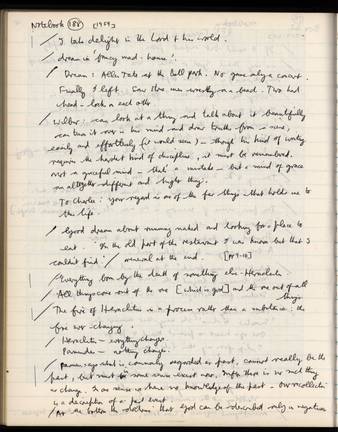 Notebook (188) [1959]
/ I take delight in the Lord & his world.
/ dream is 'fancy mad-house'.
/ Dream: Allen Tate at the ball park. No game only a concert.
Finally I left. Saw three men wrestling on a bed. Two had
head-locks on each other
/ Wilbur: can look at a thing and talk about it beautifully
can turn it over in his mind and draw truths from a
easily and effortlessly (it would seem) – though this kind of writing
requires the hardest kind of discipline, it must be remembered.
Not a graceful mind – that's a mistake – but a mind of grace
an altogether different and higher thing.
To Charlie: your regard is one of the few things that holds me to
this life.
/ Good dream about running naked and looking for a place to
eat. In the old part of the restaurant I was known but that I
couldn't find. / at the end.
/ Everything born by the death of something else. Heraclitus
/ All things come out of the one [which is god] and the one out of all
things
/ The fire of Heraclitus is a process rather than a substance: the
fire ever-changing.
/ Heraclitus – everything changes
Parmenides – nothing changes.
/ Parm. says what is commonly regarded as past, cannot really be the
past, but must in some sense exist now. Infers there is no such thing
as change. In a sense we have no knowledge of the past – our recollection
is a deception of a past event
/ At the bottom the doctrine that God can be described only in negatives